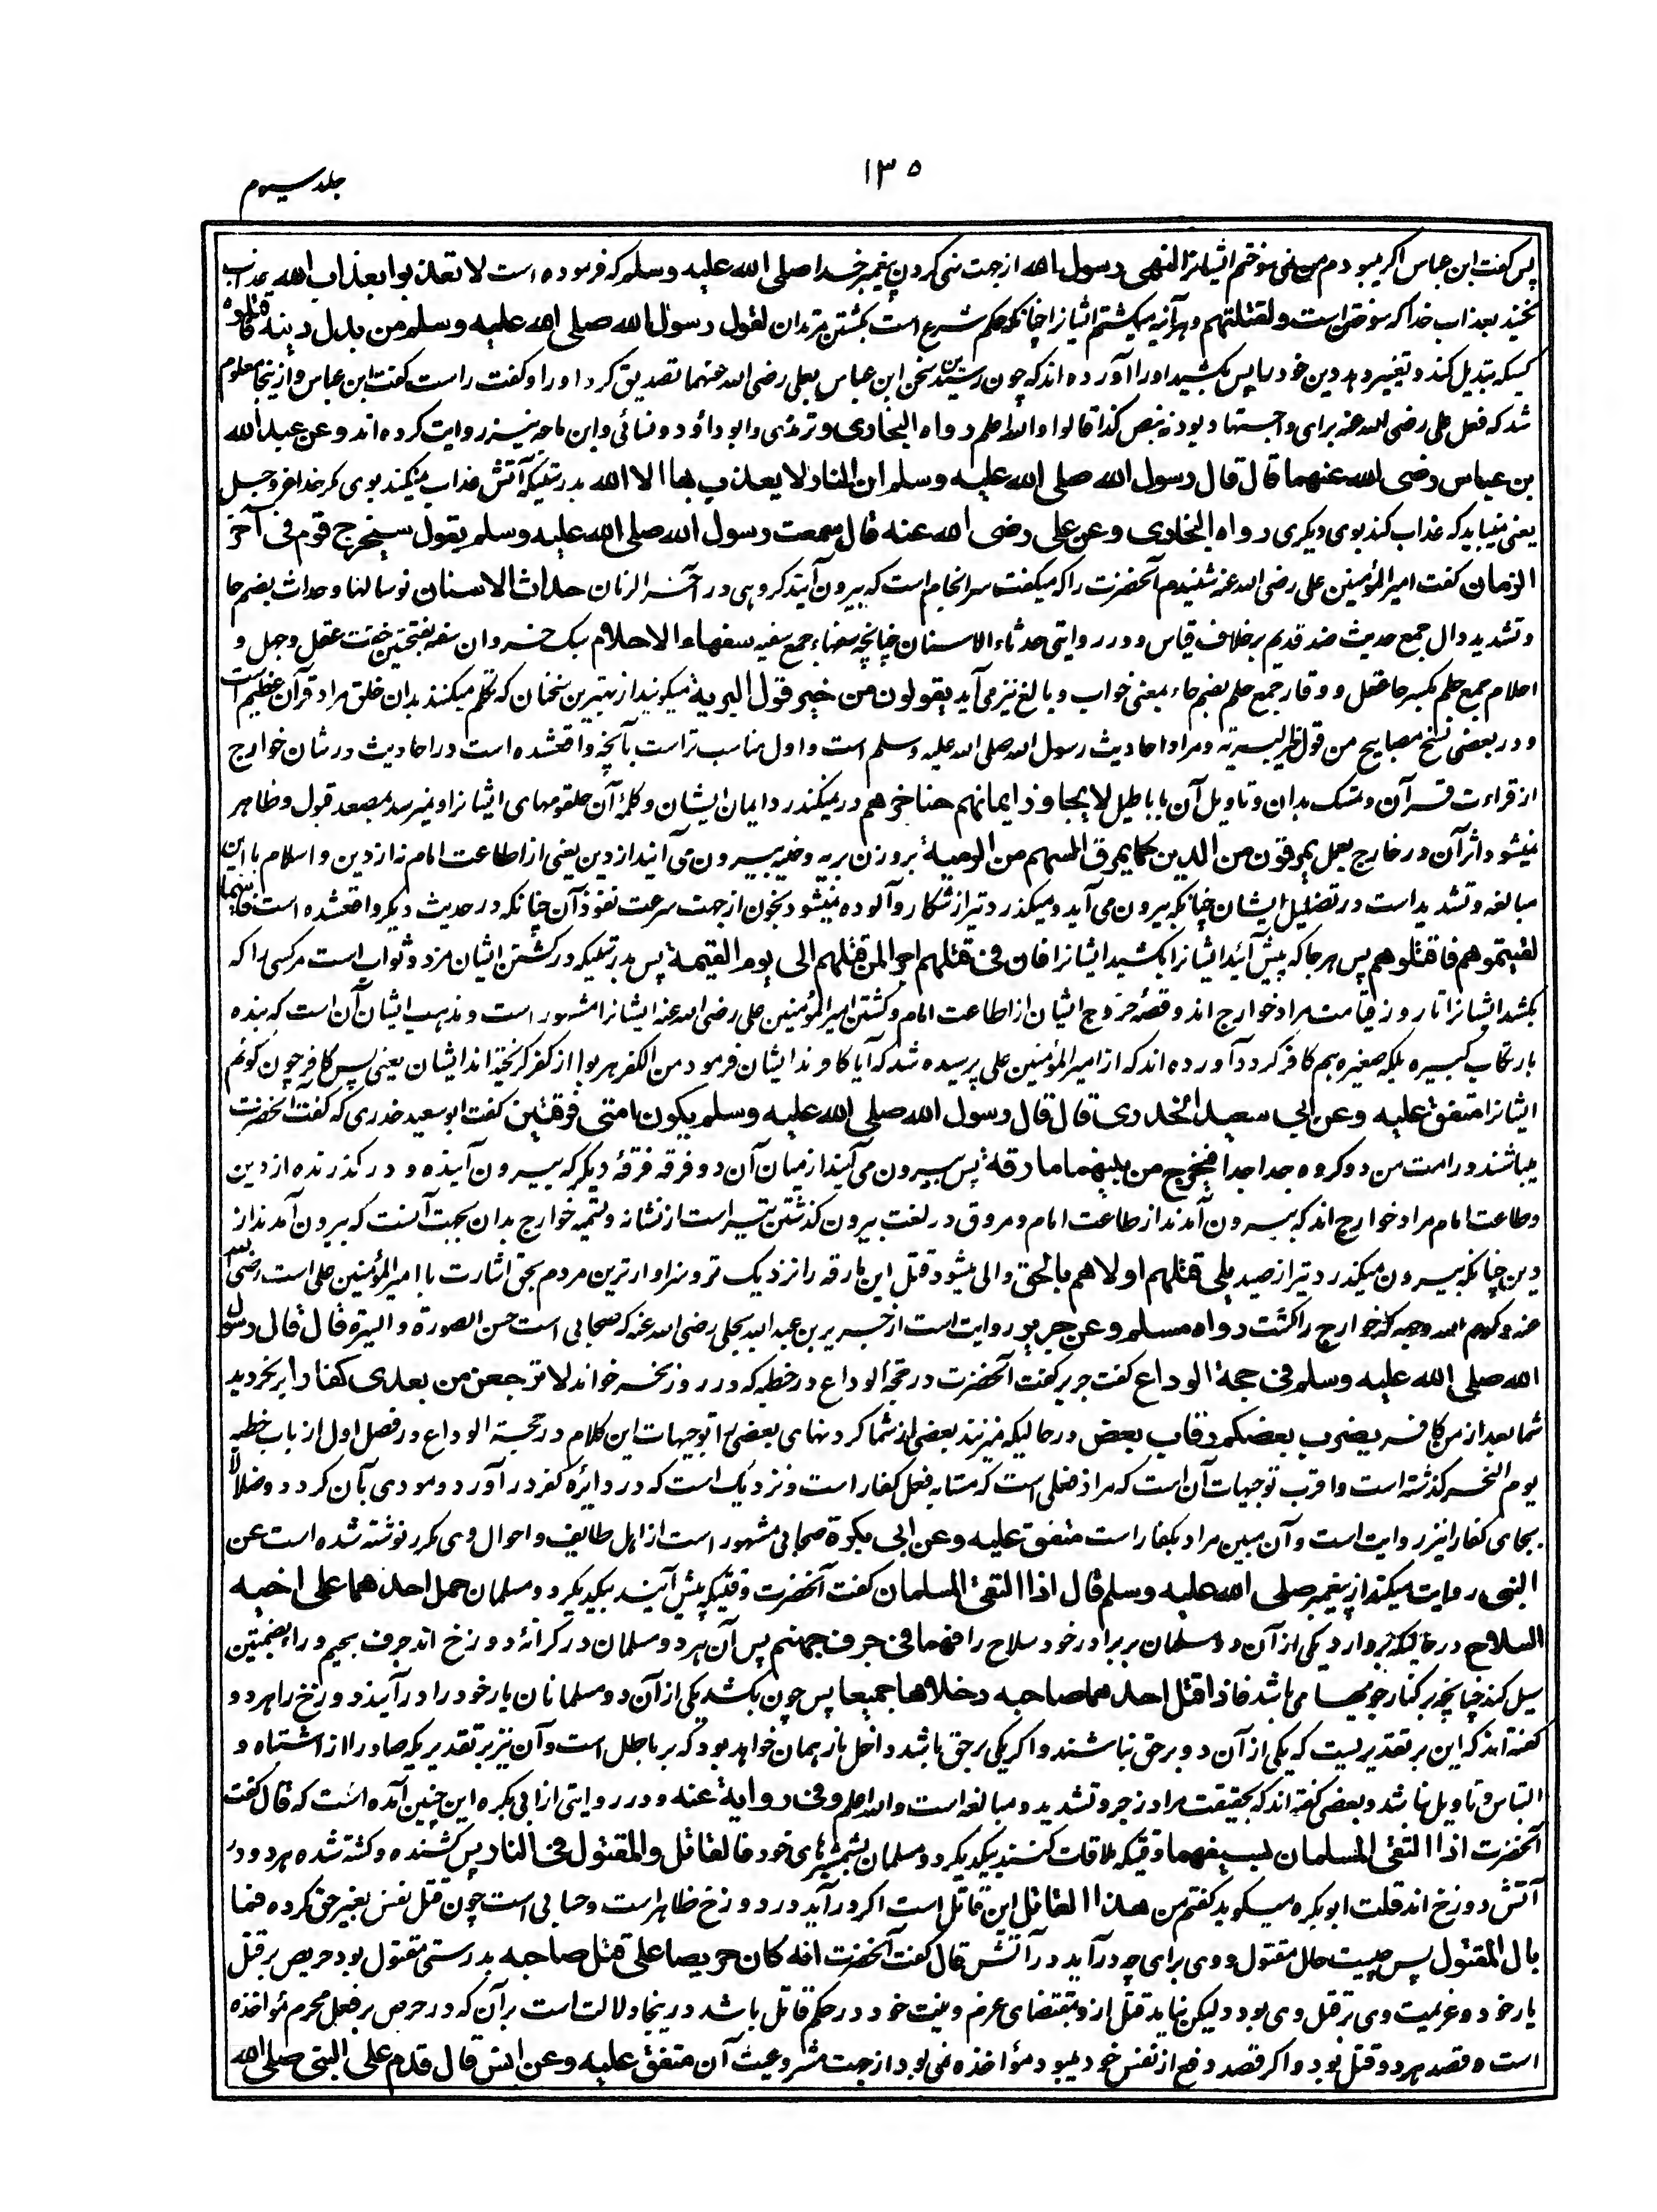 ۱۳۵
جلد سیوم
پس گفت ابن عباس اگر میبودم من نمی سوختم ایشانرا لنهی رسول الله از جهت نهی کردن پیغمبر خدا صلی الله علیه وسلم که فرموده است لا تعذبوا بعذاب الله عذاب
نکنید بعذاب خدا که سوختن است ولقتلتهم وهر آئینه میکشتم ایشانرا چنانکه حکم شرع است بکشتن مرتدان لقول رسول الله صلی الله علیه وسلم من بدل دینه فاقتلوه
کسیکه تبدیل کند وتغییر دهد دین خود را پس بکشید او را آورده اند که چون رسید این سخن ابن عباس بعلی رضی الله عنهما تصدیق کرد او را وگفت راست گفت ابن عباس وازینجا معلوم
شد که فعل علی رضی الله عنه برای واجتهاد بود نه بنص کذا قالوا والله اعلم رواه البخاری وترمذی وابو داؤد ونسائی وابن ماجه نیز روایت کرده اند وعن عبد الله
بن عباس رضی الله عنهما قال قال رسول الله صلی الله علیه وسلم ان النار لا یعذب بها الا الله بدرستیکه آتش عذاب نمیکند بوی مگر خدا عز وجل
یعنی نمیباید که عذاب کند بوی دیگری رواه البخاری وعن علی رضی الله عنه قال سمعت رسول الله صلی الله علیه وسلم یقول سیخرج قوم فی آخر
الزمان گفت امیر المؤمنین علی رضی الله عنه شنیدم آنحضرت را که میگفت سرانجام است که بیرون آیند گروهی در آخر الزمان حداث الاسنان نوسالها وحداث بضم حا
وتشدید دال جمع حدیث ضد قدیم برخلاف قیاس ودر روایتی حدثاء الاسنان چنانچه سفهاء جمع سفیه سفهاء الاحلام سبک خردان سفه بفتحتین خفت عقل وجهل و
احلام جمع حلم بکسر حا عقل ووقار جمع حلم بضم حاء بمعنی خواب وبالغ نیز می آید یقولون من خیر قول البریة میگویند از بهترین سخنان که تکلم میکنند بدان خلق مراد قرآن عظیم است
ودر بعضی نسخ مصابیح من قول خیر البریه ومراد احادیث رسول الله صلی الله علیه وسلم است واول مناسب تر است بآنچه واقعشده است در احادیث در شان خوارج
از قراءت قرآن وتمسک بدان وتاویل آن باباطیل لا یجاوز ایمانهم حناجرهم در نمیگذرد ایمان ایشان وکلمه آن حلقومهای ایشانرا ونمیرسد بمصعد قبول وظاهر
نمیشود اثر آن در خارج بعمل یمرقون من الدین کما یمرق السهم من الرمیة بر وزن بریه وخلیه بیرون می آیند از دین یعنی از اطاعت امام نه از دین واسلام با این
مبالغه وتشدید است در تضلیل ایشان چنانکه بیرون می آید ومیگذرد تیر از شکار وآلوده نمیشود بخون از جهت سرعت نفوذ آن چنانکه در حدیث دیگر واقعشده است فاینما
لقیتموهم فاقتلوهم پس هر جا که پیش آئید ایشانرا بکشید ایشانرا فان فی قتلهم اجرا لمن قتلهم الی یوم القیمة پس بدرستیکه در کشتن ایشان مزد وثواب است مر کسی را که
بکشد ایشانرا تا روز قیامت مراد خوارج اند وقصه خروج ایشان از اطاعت امام وکشتن امیر المؤمنین علی رضی الله عنه ایشانرا مشهور است ومذهب ایشان آن است که بنده
بارتکاب کبیره بلکه صغیره هم کافر گردد آورده اند که از امیر المؤمنین علی پرسیده شد که آیا کافرند ایشان فرمود من الکفر هربوا از کفر گریخته اند ایشان یعنی پس کافر چون گوئم
ایشانرا متفق علیه وعن ابی سعید الخدری قال قال رسول الله صلی الله علیه وسلم یکون امتی فرقتین گفت ابو سعید خدری که گفت آنحضرت
میباشند در امت من دو گروه جدا جدا فیخرج من بینهما مارقة پس بیرون می آیند از میان آن دو فرقه فرقه دیگر که بیرون آینده ودر گذرنده از دین
وطاعت امام مراد خوارج اند که بیرون آمدند از طاعت امام ومروق در لغت بیرون گذشتن تیر است از نشانه وتسمیه خوارج بدان بجهت آنست که بیرون آمدند از
دین چنانکه بیرون میگذرد تیر از صید یلی قتلهم اولاهم بالحق والی میشود قتل این مارقه را نزدیک تر وسزاوارترین مردم بحق اشارت با امیر المؤمنین علی است رضی الله
عنه وکرم الله وجهه که خوارج را کشت رواه مسلم وعن جریر روایت است از جریر بن عبد الله بجلی رضی الله عنه که صحابی است حسن الصورة والسیرة قال قال رسول
الله صلی الله علیه وسلم فی حجة الوداع گفت جریر گفت آنحضرت در حجة الوداع در خطبه که در روز نحر خواند لا ترجعن من بعدی کفارا بر نگردید
شما بعد از من کافر یضرب بعضکم رقاب بعض در حالیکه میزنند بعضی از شما گردنهای بعضی را توجیهات این کلام در حجة الوداع در فصل اول از باب خطبه
یوم النحر گذشته است واقرب توجیهات آن است که مراد فعلی است که مشابه فعل کفار است ونزدیک است که در دایره کفر در آورد ومودی بآن گردد وضلالا
بجای کفارا نیز روایت است وآن مبین مراد بکفار است متفق علیه وعن ابی بکرة صحابی مشهور است از اهل طایف واحوال وی مکرر نوشته شده است عن
النبی روایت میکند از پیغمبر صلی الله علیه وسلم قال اذا التقی المسلمان گفت آنحضرت وقتیکه پیش آیند بیکدیگر دو مسلمان حمل احدهما علی اخیه
السلاح در حالیکه بردارد یکی از آن دو مسلمان بر برادر خود سلاح را فهما فی جرف جهنم پس آن هر دو مسلمان در کرانه دوزخ اند جرف بجیم وراء بضمتین
سیل کند چنانچه بر کنار جویها می باشد فاذا قتل احدهما صاحبه دخلاها جمیعا پس چون بکشد یکی از آن دو مسلمانان یار خود را در آیند دوزخ را هر دو و
گفته اند که این بر تقدیریست که یکی از آن دو بر حق نباشند واگر یکی بر حق باشد داخل نار همان خواهد بود که بر باطل است وآن نیز بر تقدیریکه صادر از اشتباه و
التباس وتاویل نباشد وبعضی گفته اند که بحقیقت مراد زجر وتشدید ومبالغه است والله اعلم وفی روایة عنه ودر روایتی از ابی بکره این چنین آمده است که قال گفت
آنحضرت اذا التقی المسلمان بسیفهما وقتیکه ملاقات کنند بیکدیگر دو مسلمان بشمشیرهای خود فالقاتل والمقتول فی النار پس کشنده وکشته شده هر دو در
آتش دوزخ اند قلت ابو بکره میگوید گفتم من هذا القاتل این قاتل است اگر در آید در دوزخ ظاهر است وحسابی است چون قتل نفس بغیر حق کرده فما
بال المقتول پس چیست حال مقتول ووی برای چه در آید در آتش قال گفت آنحضرت انه کان حریصا علی قتل صاحبه بدرستی مقتول بود حریص بر قتل
یار خود وعزیمت وی بر قتل وی بود ولیکن نیامد قتل ازو بمقتضای عرض ونیت خود در حکم قاتل باشد درینجا دلالت است بر آن که در حرص بر فعل محرم مؤاخذه
است وقصد هر دو قتل بود واگر قصد دفع از نفس خود میبود مؤاخذه نمی بود از جهت مشروعیت آن متفق علیه وعن انس قال قدم علی النبی صلی الله